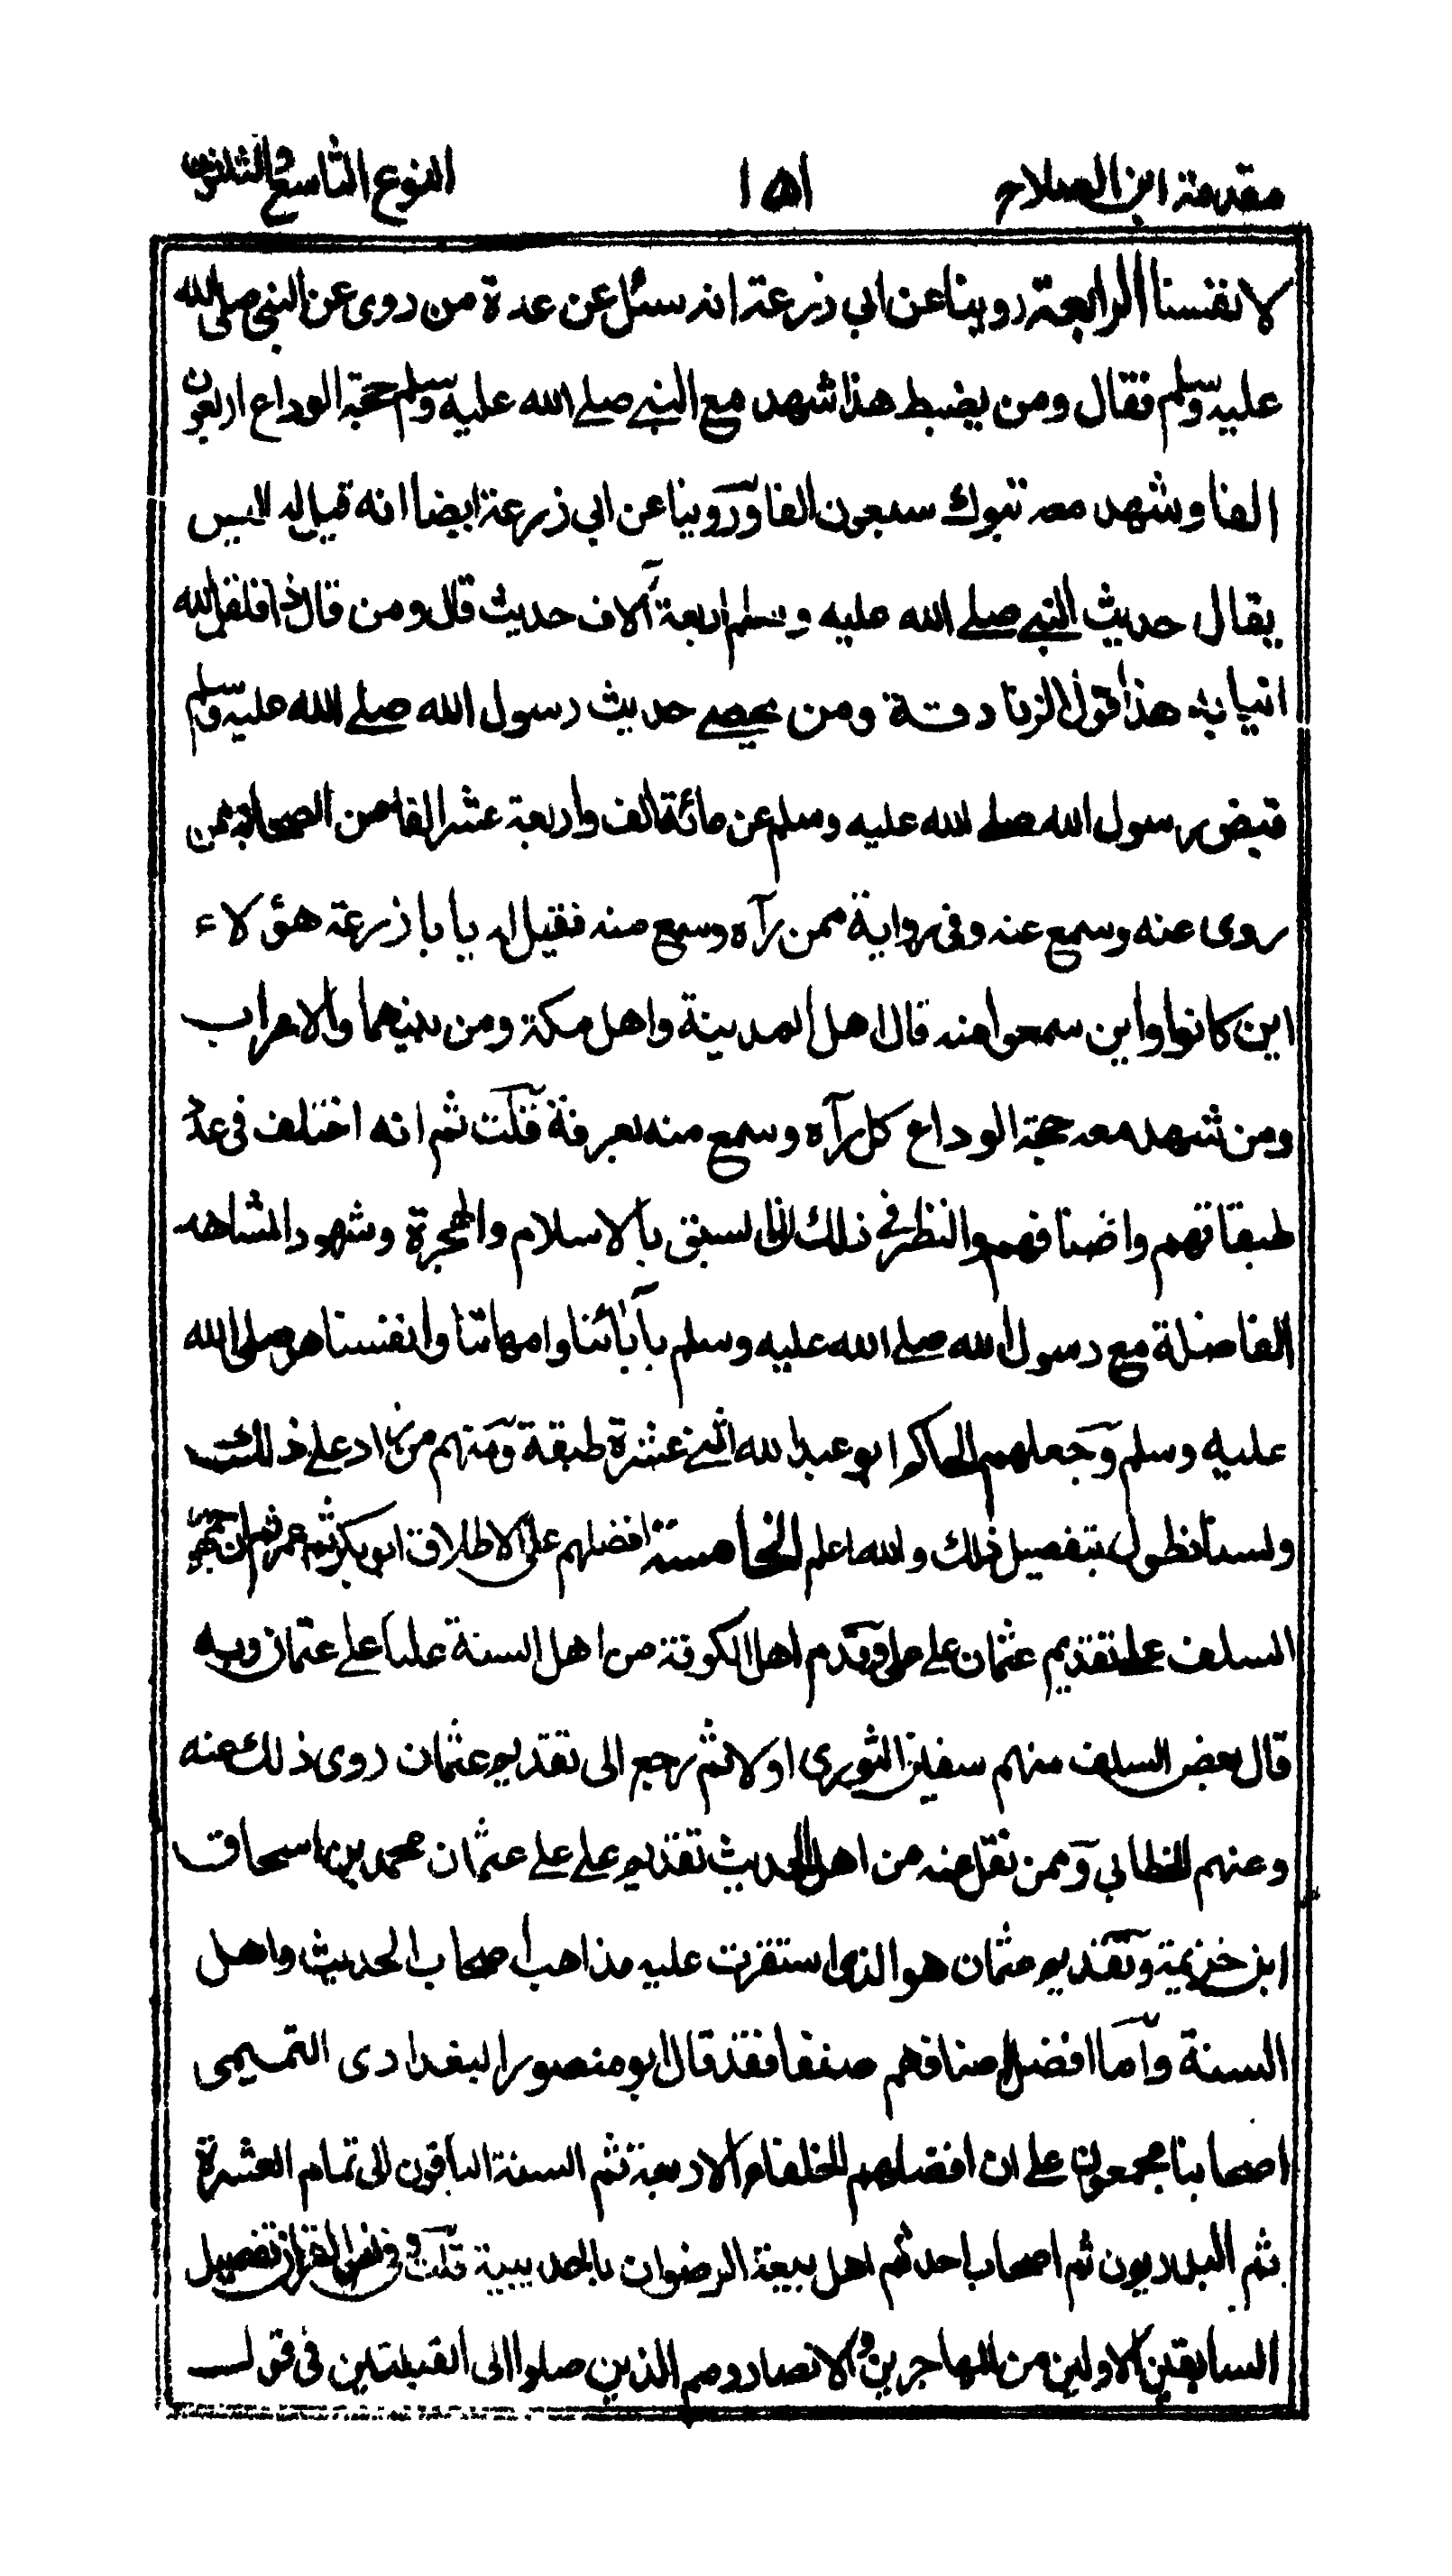 مقدمة ابن الصلاح ١٥١ النوع التاسع والثلاثون
لانفسنا الرابعة روينا عن ابي زرعة انه سئل عن عدة من روى عن النبي صلى الله
عليه وسلم فقال ومن يضبط هذا شهد مع النبي صلے الله عليه وسلم حجة الوداع اربعون
الفا وشهد معه تبوك سبعون الفا وروينا عن ابي زرعة ايضا انه قيل له اليس
يقال حديث النبي صلے الله عليه وسلم اربعة آلاف حديث قال ومن قال ذا قلقل الله
انيابه هذا قول الزنادقة ومن يحصے حديث رسول الله صلے الله عليه وسلم
قبض رسول الله صلے الله عليه وسلم عن مائة الف واربعة عشر الفا من الصحابة ممن
روى عنه وسمع عنه وفي رواية ممن رآه وسمع منه فقيل له يا با زرعة هؤلاء
اين كانوا واين سمعوا منه قال اهل المدينة واهل مكة ومن بينهما والاعراب
ومن شهد معه حجة الوداع كل رآه وسمع منه بعرفة قلت ثم انه اختلف في عدد
طبقاتهم واصنافهم والنظر في ذلك الى السبق بالاسلام والهجرة وشهود المشاهد
الفاضلة مع رسول الله صلے الله عليه وسلم بآبائنا وامهاتنا وانفسنا هو صلى الله
عليه وسلم وجعلهم الحاكم ابو عبد الله اثنے عشرة طبقة ومنهم من زاد على ذلك
ولسنا نطول بتفصيل ذلك والله اعلم الخامسة افضلهم على الاطلاق ابو بكر ثم عمر ثم ان جمهور
السلف على تقديم عثمان على علي وقدم اهل الكوفة من اهل السنة عليا على عثمان وبه
قال بعض السلف منهم سفين الثوري اولا ثم رجع الى تقديم عثمان روى ذلك عنه
وعنهم الخطابي وممن نقل عنه من اهل الحديث تقديم علي على عثمان محمد بن اسحاق
ابن خزيمة وتقديم عثمان هو الذى استقرت عليه مذاهب اصحاب الحديث واهل
السنة واما افضل اصنافهم صنفا فقد قال ابو منصور البغدادى التميمى
اصحابنا مجمعون على ان افضلهم الخلفاء الاربعة ثم الستة الباقون الى تمام العشرة
ثم البدريون ثم اصحاب احد ثم اهل بيعة الرضوان بالحديبية قلت وفي نص القران تفضيل
السابقين الاولين من المهاجرين والانصار وهم الذين صلوا الى القبلتين في قول